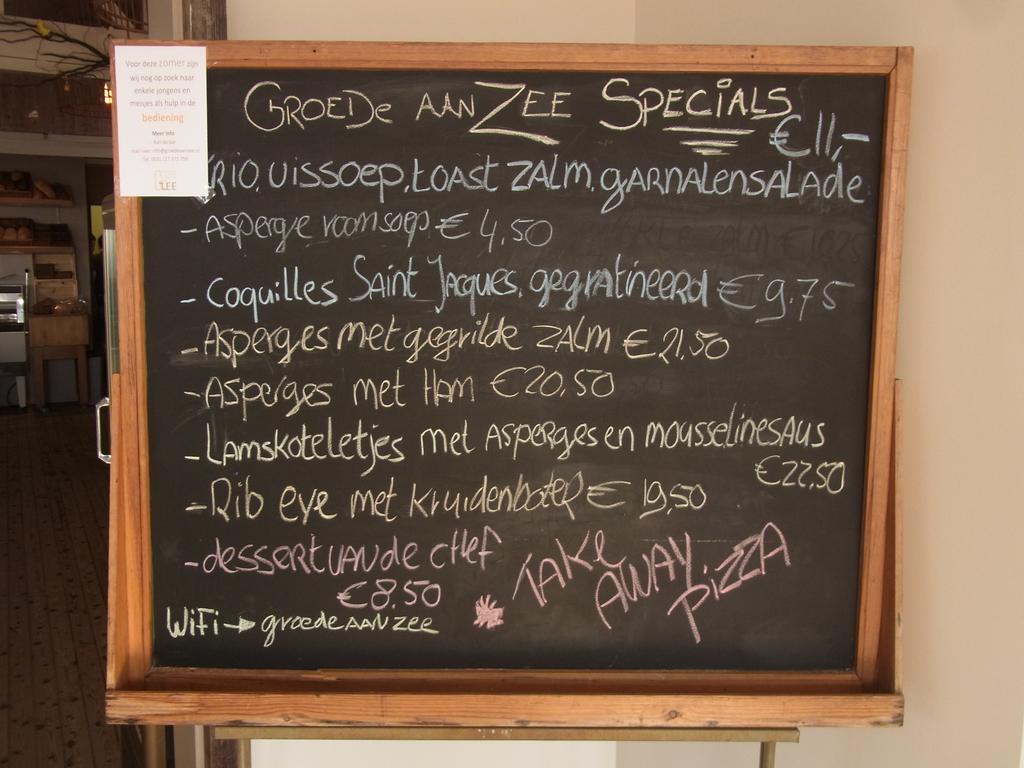 Voor deze zomer zijn
wij nog op zoek naar
enkele jongens en
meisjes als hulp in de
bediening
Meer info
Aan de bar
ZEE
GROEDE AAN ZEE SPECIALS
€11,-
RIO. VISSOEP. TOAST ZALM. GARNALENSALADE
- ASPERGE ROOMSOEP € 4.50
- COQUILLES SAINT JACQUES. gegratineerd € 9.75
- ASPERGES MET gegrilde ZALM € 21,50
- ASPERGES met HAM € 20,50
- LAMSKOTELETJES met ASPERGES en mousselinesaus
€22,50
- Rib eye met kruidenboter € 19,50
- dessert van de chef
€8.50
TAKE
AWAY.
PIZZA
WiFi → groedeaanzee